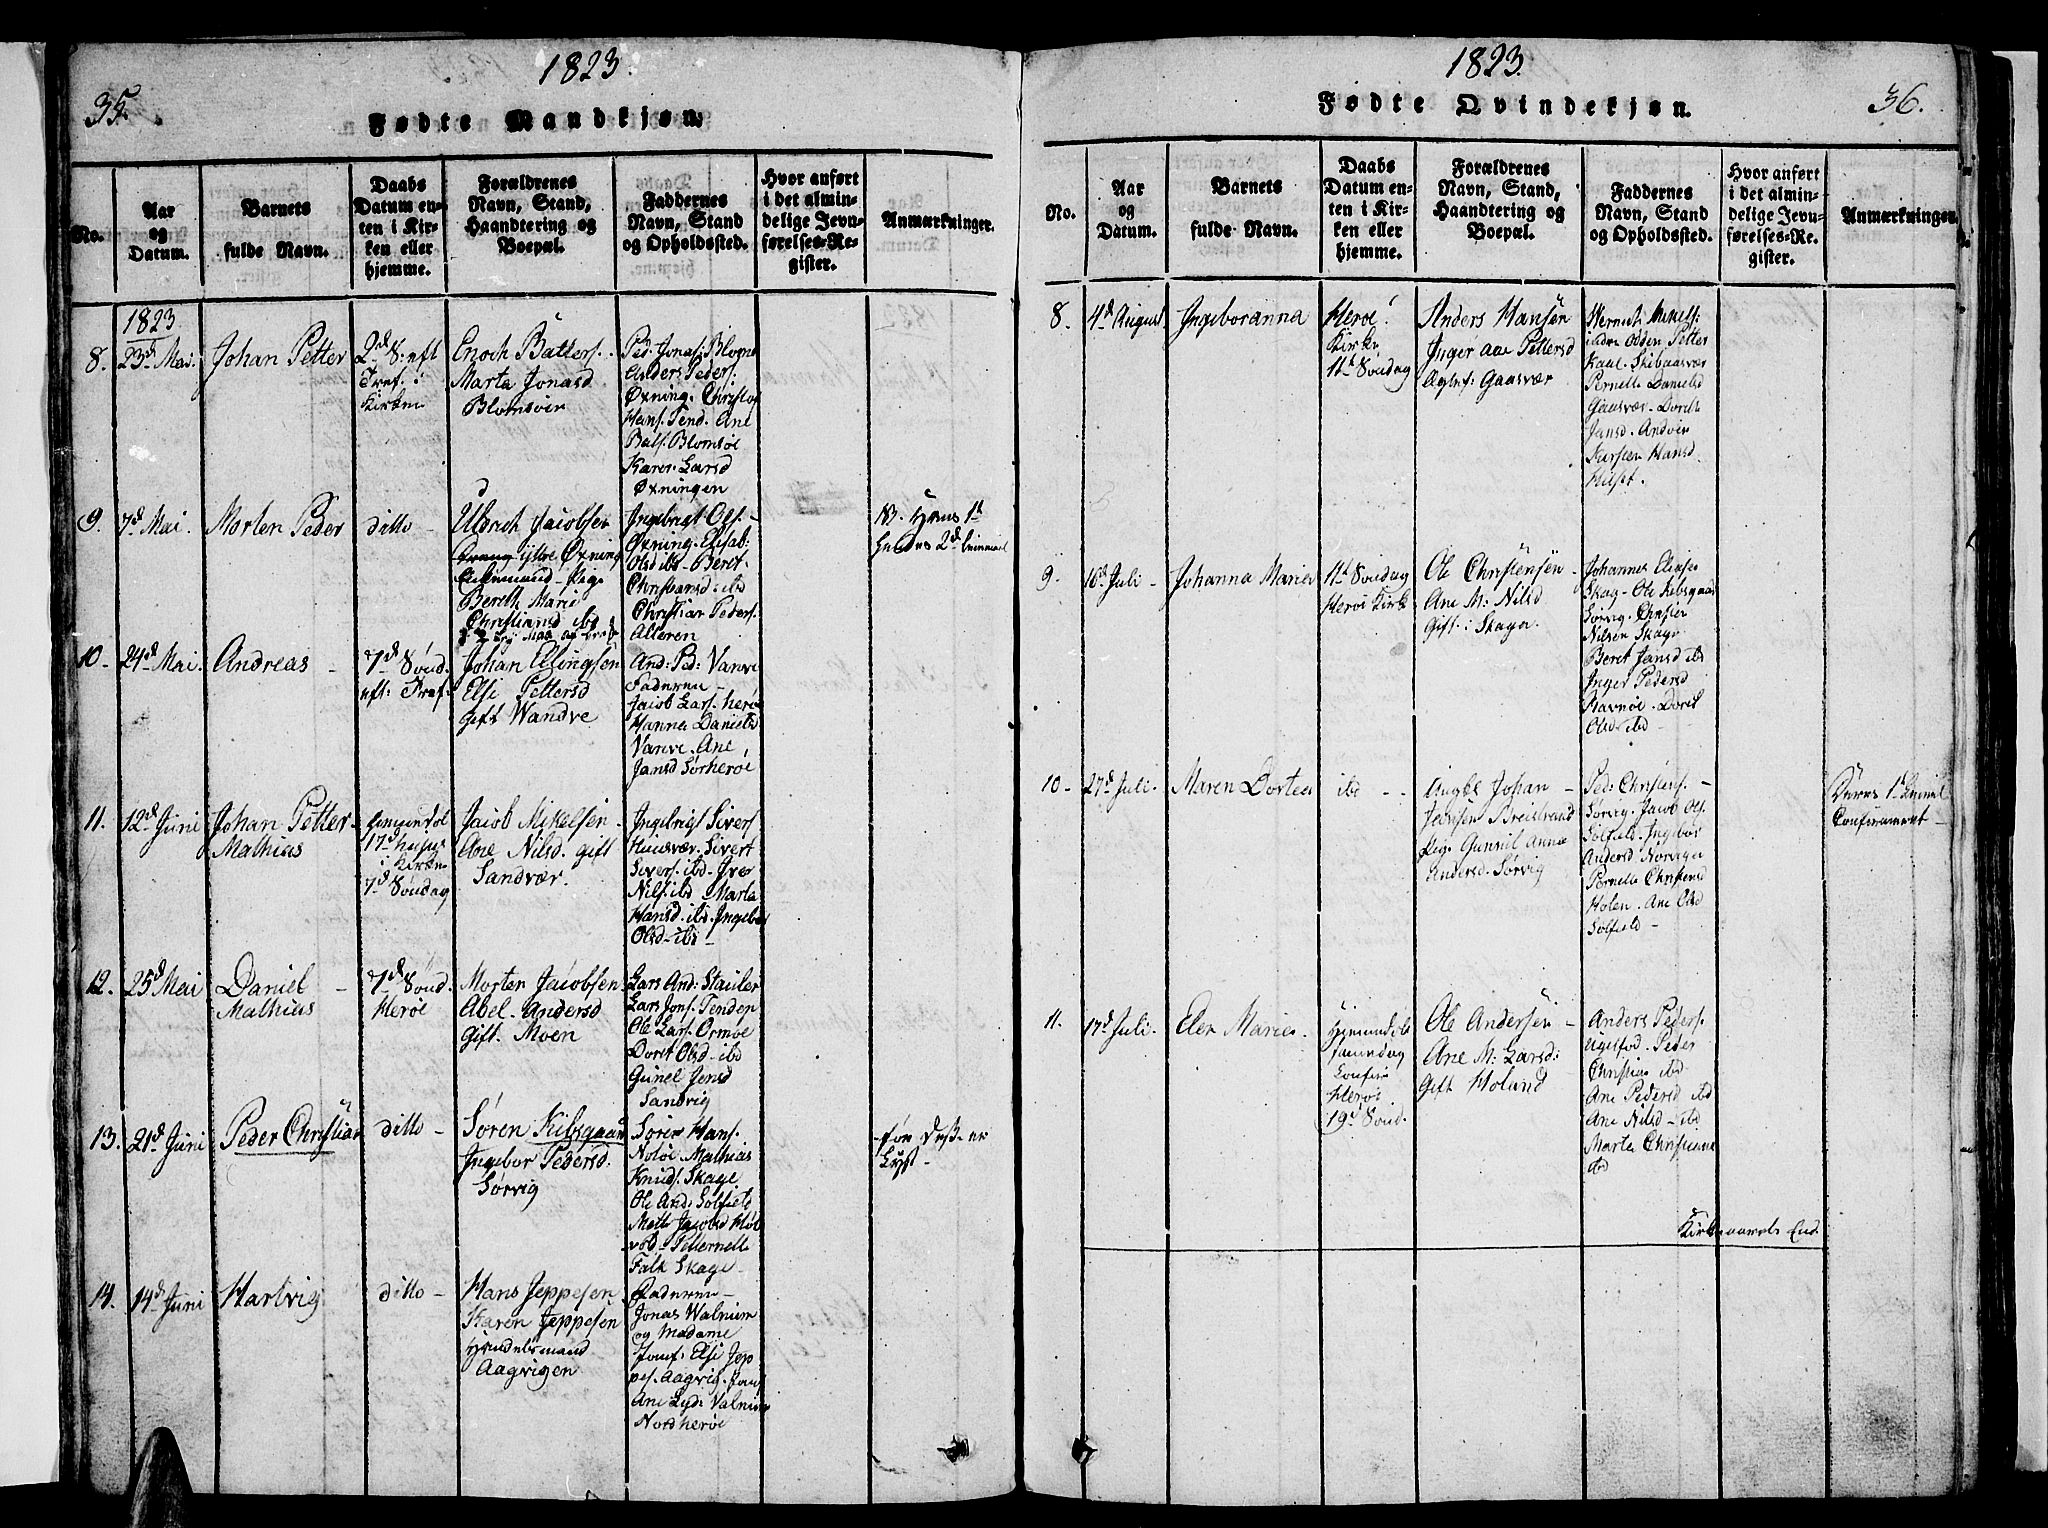 35.
1823.
Fødte Mandkjøn.
No.
Aar
og
Datum.
Barnets
fulde Navn.
Daabs
Datum en-
ten i Kir-
ken eller
hjemme.
Forældrenes
Navn, Stand,
Haandtering og
Boepæl.
Faddernes
Navn, Stand
og Opholdssted.
Hvor anført
i det almin-
delige Jevn-
førelses-Re-
gister.
Anmærkninger.
1823
8.
23d Mai.
Johan Petter
2d S: eft
Tref. i
Kirken
Enoch Batters.
Marta Jonasd
Blomsøir
Ped. Jonas. Blogne
Anders Peders.
Øxning. Christop
Hans. Tend. Ane
Balf. Blomsøe
Karen Larsd
Øxningen
9.
7d Mai
Morten Peder
ditto -
Uldrich Jacobsen
ytre Øxning
Enkemand - Pige
Bereth Marie
Christiansd ibd
Ingebrigt Ols. -
Øxning. Elisab.
Olsd ibd - Beret
Christiansd - ibd
Christian Peders.
Alteren
Hans 1t
hendes 2d
10.
24d Mai.
Andreas -
7d Sønd.
eft: Tref.
Johan Ellingsen
Elsi Pettersd
gift Wandve
And: Ped: Vanve
Faderen -
Jacob Lars. herøe
Hanna Danielsd
Vanve. Ane
Jansd Sørherøe
11.
12d Juni
Johan Petter
Mathias
17d
i Kirken
7d Søndag
Jacob Mikelsen.
Ane Nilsd. gift
Sandvær.
Ingebrigt Sivers.
Huusvær. Sivert
Sivers. ibd. Iver
Nils. ibd Marta
Hansd. ibd. Ingebor
Olsd - ibd -
12.
25d Mai
Daniel -
Mathias
7d Sønd.
Herøe
Morten Jacobsen
Abel Andersd
gift. Moen
Lars And: Stauler
Lars Jons. Tenden
Ole Lars. Ormøe
Doret Olsd - ibd
Gunel Jensd
Sandvig
13.
21d Juni
Peder Christian
ditto -
Søren Kibsgaar
Ingebor Pedersd.
Sørvig
Søren Hans.
Noløe. Mathias
Knuds. Skage
Ole And: Solfield
Mette Jacobsd Høl
vod - Petternelle
Falk Skage -
14.
14d Juni
Hartvig
ditto -
Hans Jeppesen
Karen Jeppesen
Handelsmand
Aagvigen
Faderen -
Jonas Walnum
og Madame
Jomf: Elsi Jep
pes. Aagvig. Jomf
Ane Lyd: Valnum
Nordherøe
1823.
Fødte Qvindekjøn.
36.
No.
Aar
og
Datum.
Barnets
fulde Navn.
Daabs
Datum en-
ten i Kir-
ken eller
hjemme.
Forældrenes
Navn, Stand,
Haandtering og
Boepæl.
Faddernes
Navn, Stand
og Opholdssted.
Hvor anført
i det almin-
delige Jevn-
førelses-Re-
gister.
Anmærkninger.
8.
4d August
Ingeboranna
Herøe
Kirke
11t Søndag
Anders Hansen
Inger ane Pettersd
Gaasvær
Mikels:
indre Olden Petter
Kaal. Skibaasvær
Pernelle Danielsd
Gaasvær. Doreth
Jansd. Andøir
Kirsten Hansd
Huset.
9.
16d Juli -
Johanna Maria
11t Søndag
Herøe Kirke
Ole Christensen -
Ane M: Nilsd
Gift. i Skagen
Johannes Elias
Skag. Ole Kibsgaar
Sørvig. Christen
Nilsen Skage
Beret Jansd ibd
Inger Pedersd
Ravnøe. Doret
Olsd - ibd
10.
27d Juli.
Maren Dortea
ibd -
Ungkl Johan -
Jensen Breistrand
Pig. Gunnil Anna
Andersd. Sørvig
Ped: Christens. -
Sørvig. Jacob Ols.
Solfield. Ingebor
Andersd Norvigen
Pernelle Christensd
Holen. Ane Olsd
Solfield -
Deres 1t
Confirmeret -
11.
17d Juli.
Elen Maria.
Herøe
19d Sønd.
Ole Andersen -
Ane M: Larsd:
Gift Holand
Anders Peders.
Peder
Christian ibd
Ane Pedersd ibd
Ane Nilsd - ibd
Marta Christians
ibd